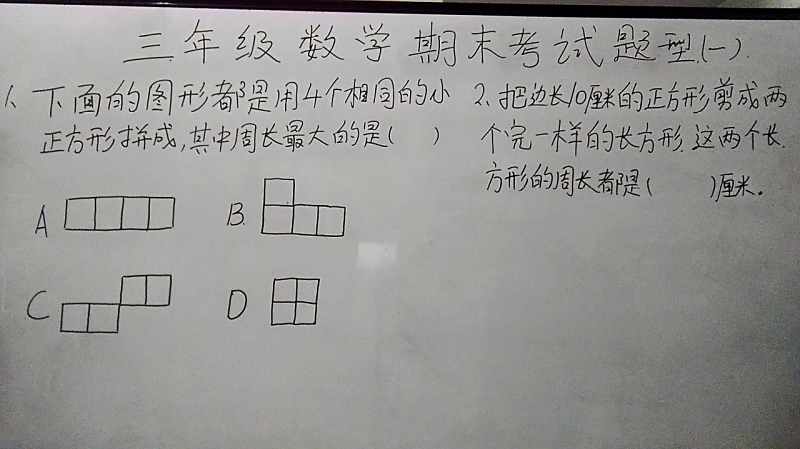 三年级数学期末考试题型(一)
1、下面的图形都是用4个相同的小
正方形拼成,其中周长最大的是( )
A
B.
C
D
2、把边长10厘米的正方形剪成两
个完一样的长方形.这两个长.
方形的周长都是( )厘米。